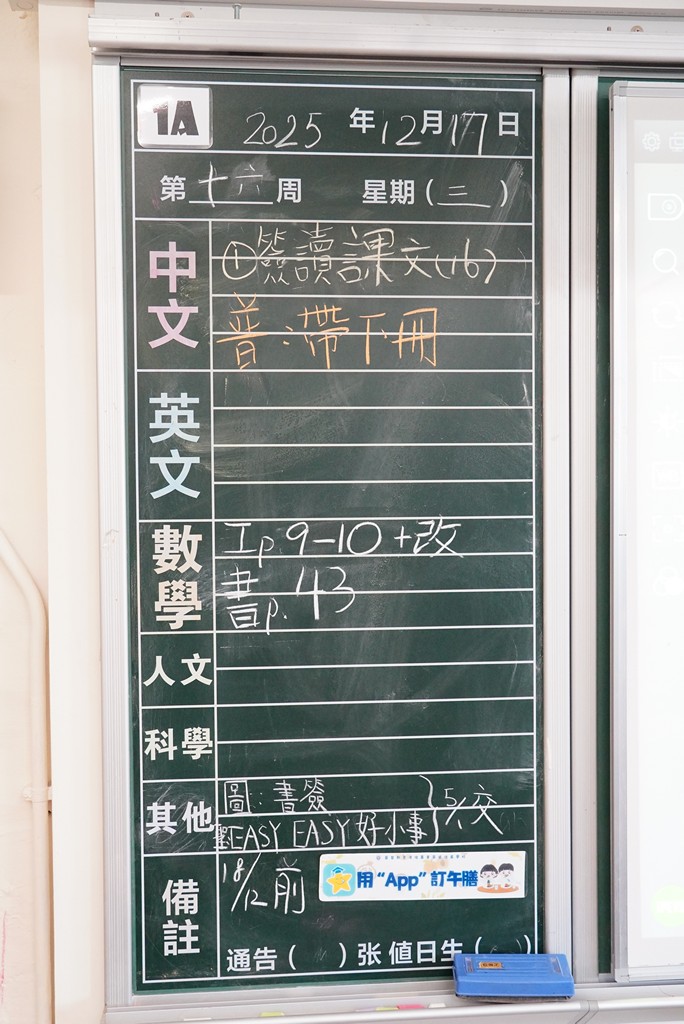 1A 2025年12月17日
第十六周 星期(三)
中文 ①簽讀課文(16)
普:帶下冊
英文
數學 工p.9-10+改
書p.43
人文
科學
其他 圖:書簽
EASY EASY好小事 } 5/1交
備註 18/12前
用“App”訂午膳
通告( )张 值日生( )